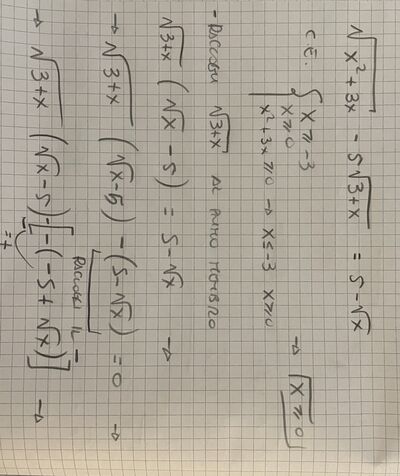 √x²+3x - 5√3+x = 5-√x
C.E. { x ≥ -3
x ≥ 0
x²+3x ≥ 0 → x ≤ -3 x ≥ 0
→ x ≥ 0
- RACCOLGO √3+x AL PRIMO MEMBRO
√3+x (√x - 5) = 5-√x →
→ √3+x (√x-5) - (5-√x) = 0 →
RACCOLGO IL -
→ √3+x (√x-5) - [-(-5+√x)] →
= +